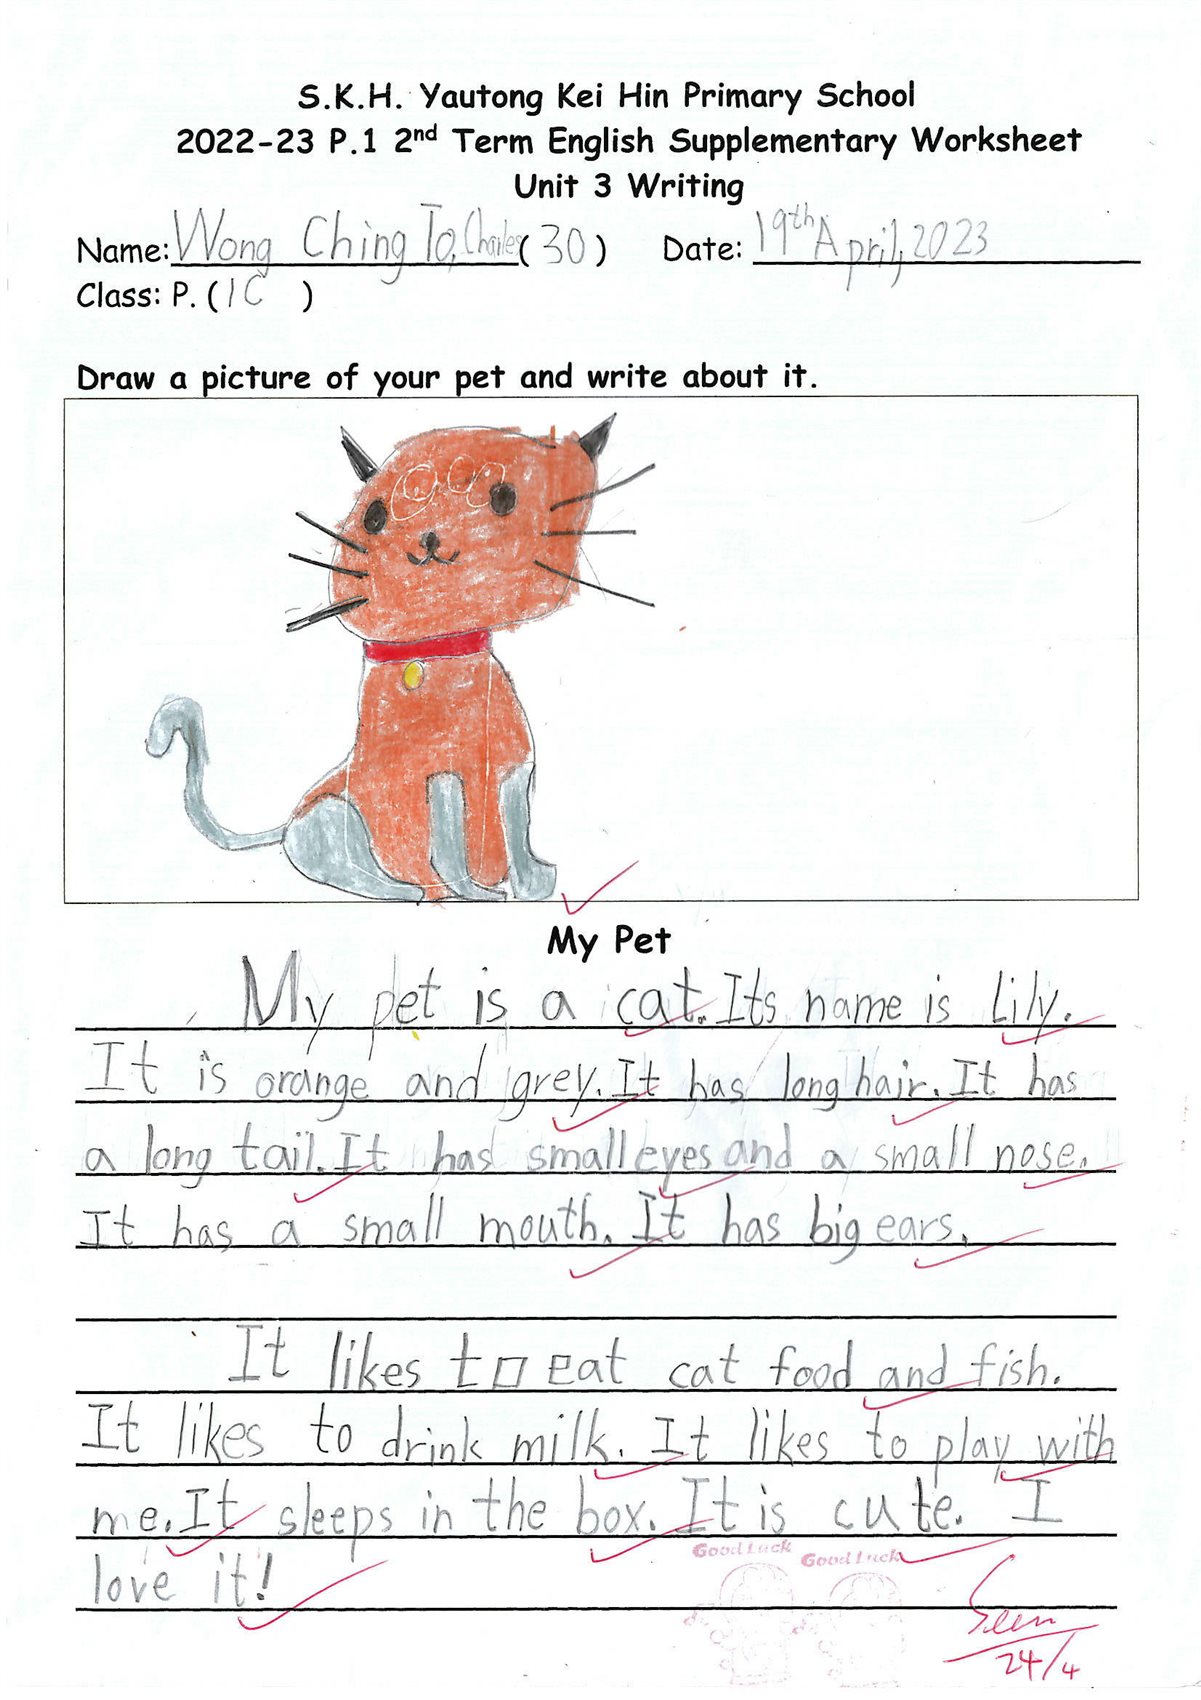 S.K.H. Yautong Kei Hin Primary School
2022-23 P.1 2nd Term English Supplementary Worksheet
Unit 3 Writing
Name: Wong Ching To, Charles ( 30 ) Date: 19th April, 2023
Class: P. ( 1C )
Draw a picture of your pet and write about it.
My Pet
My pet is a cat. Its name is Lily.
It is orange and grey. It has long hair. It has
a long tail. It has small eyes and a small nose.
It has a small mouth. It has big ears.
It likes to eat cat food and fish.
It likes to drink milk. It likes to play with
me. It sleeps in the box. It is cute. I
love it!
Good Luck Good Luck
Seen
24/4